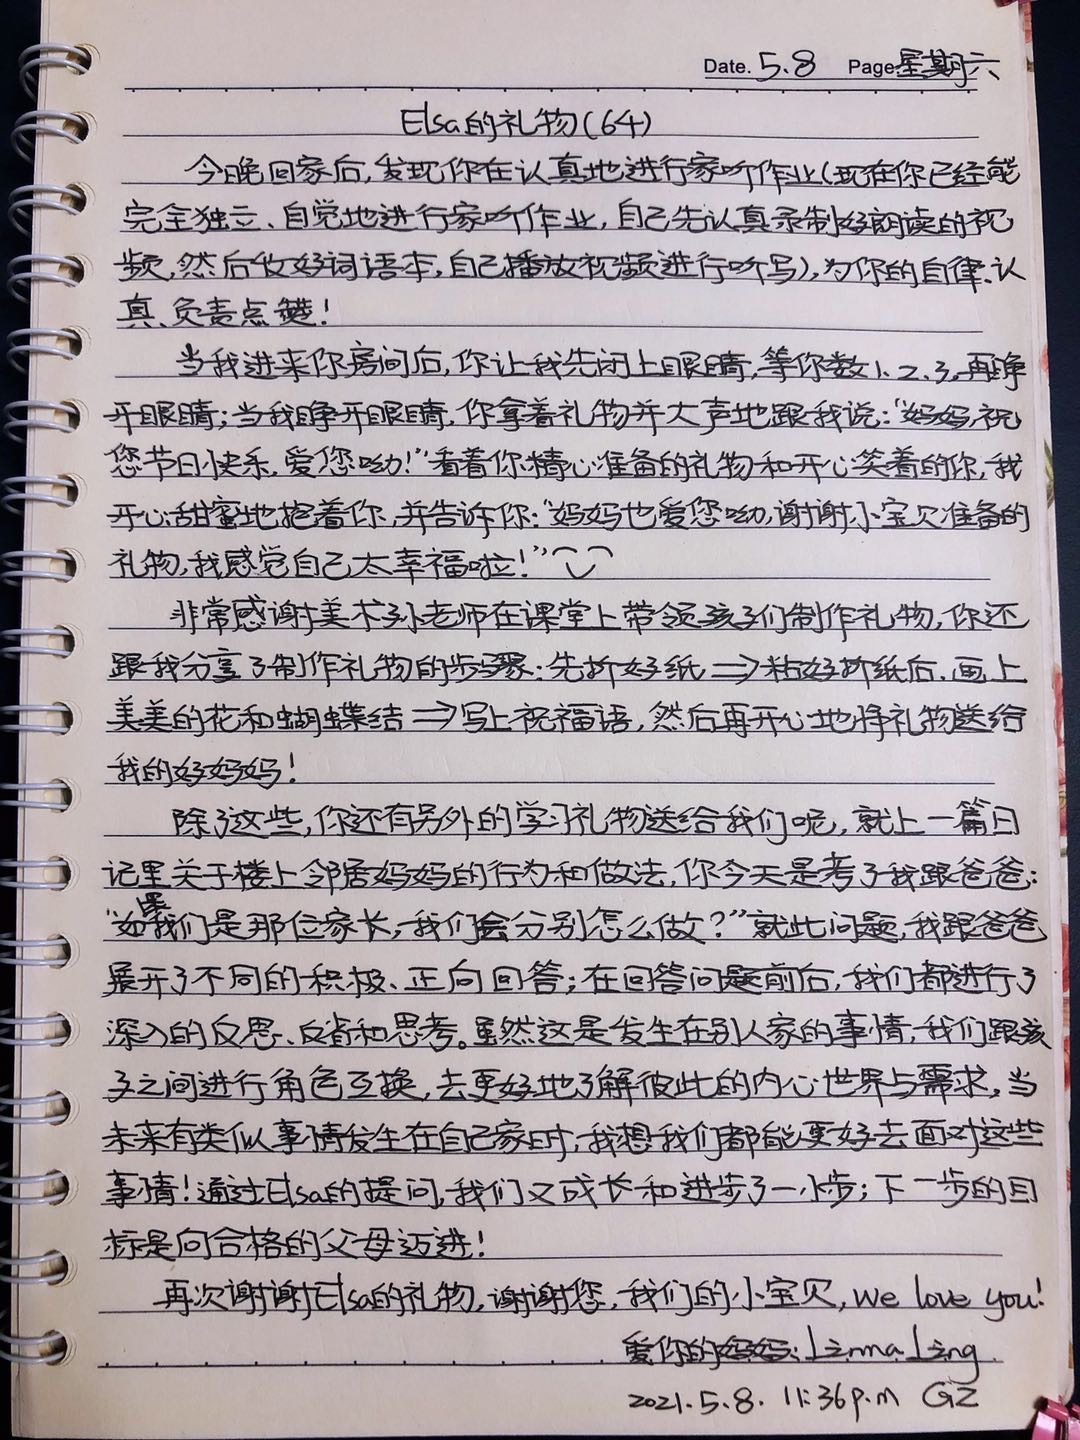 Date. 5.8 Page 星期六
Elsa的礼物(64)
今晚回家后,发现你在认真地进行家听作业(现在你已经能
完全独立、自觉地进行家听作业,自己先认真录制好朗读的视
频,然后收好词语本,自己播放视频进行听写),为你的自律、认
真、负责点赞!
当我进来你房间后,你让我先闭上眼睛,等你数1.2.3.再睁
开眼睛;当我睁开眼睛,你拿着礼物并大声地跟我说:“妈妈,祝
您节日快乐,爱您呦!”看着你精心准备的礼物和开心笑着的你,我
开心甜蜜地抱着你,并告诉你:“妈妈也爱您呦,谢谢小宝贝准备的
礼物,我感觉自己太幸福啦!”
非常感谢美术孙老师在课堂上带领孩子们制作礼物,你还
跟我分享了制作礼物的步骤:先折好纸⇒粘好折纸后,画上
美美的花和蝴蝶结⇒写上祝福语,然后再开心地将礼物送给
我的好妈妈!
除了这些,你还有另外的学习礼物送给我们呢,就上一篇日
记里关于楼上邻居妈妈的行为和做法,你今天是考了我跟爸爸:
“如果我们是那位家长,我们会分别怎么做?”就此问题,我跟爸爸
展开了不同的积极、正向回答;在回答问题前后,我们都进行了
深入的反思、反省和思考。虽然这是发生在别人家的事情,我们跟孩
子之间进行角色互换,去更好地了解彼此的内心世界与需求,当
未来有类似事情发生在自己家时,我想我们都能更好去面对这些
事情!通过Elsa的提问,我们又成长和进步了一小步;下一步的目
标是向合格的父母迈进!
再次谢谢Elsa的礼物,谢谢您,我们的小宝贝,we love you!
爱你的妈妈:Linma Ling
2021.5.8. 11:36p.m GZ